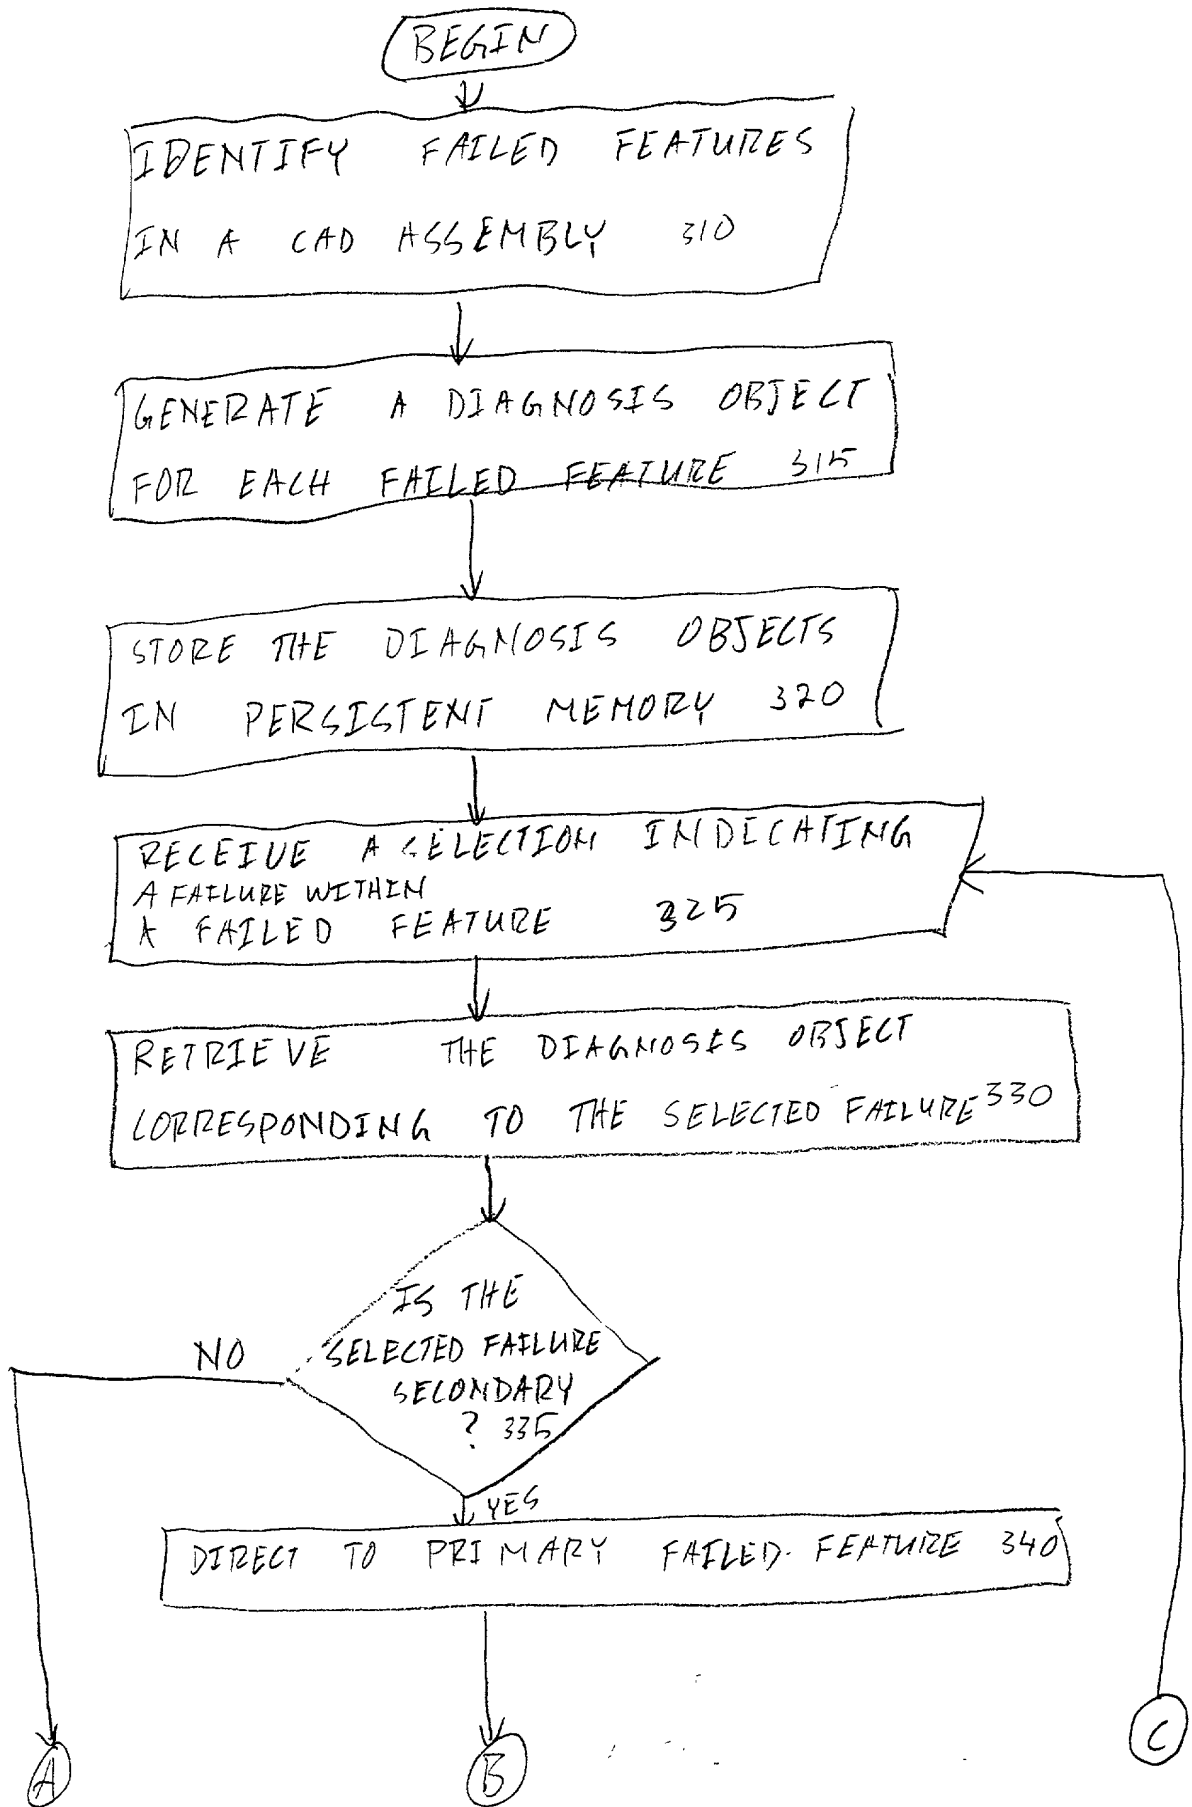 BEGIN
IDENTIFY FAILED FEATURES
IN A CAD ASSEMBLY 310
GENERATE A DIAGNOSIS OBJECT
FOR EACH FAILED FEATURE 315
STORE THE DIAGNOSIS OBJECTS
IN PERSISTENT MEMORY 320
RECEIVE A SELECTION INDICATING
A FAILURE WITHIN
A FAILED FEATURE 325
RETRIEVE THE DIAGNOSIS OBJECT
CORRESPONDING TO THE SELECTED FAILURE 330
IS THE
NO SELECTED FAILURE
SECONDARY
? 335
YES
DIRECT TO PRIMARY FAILED FEATURE 340
A B C